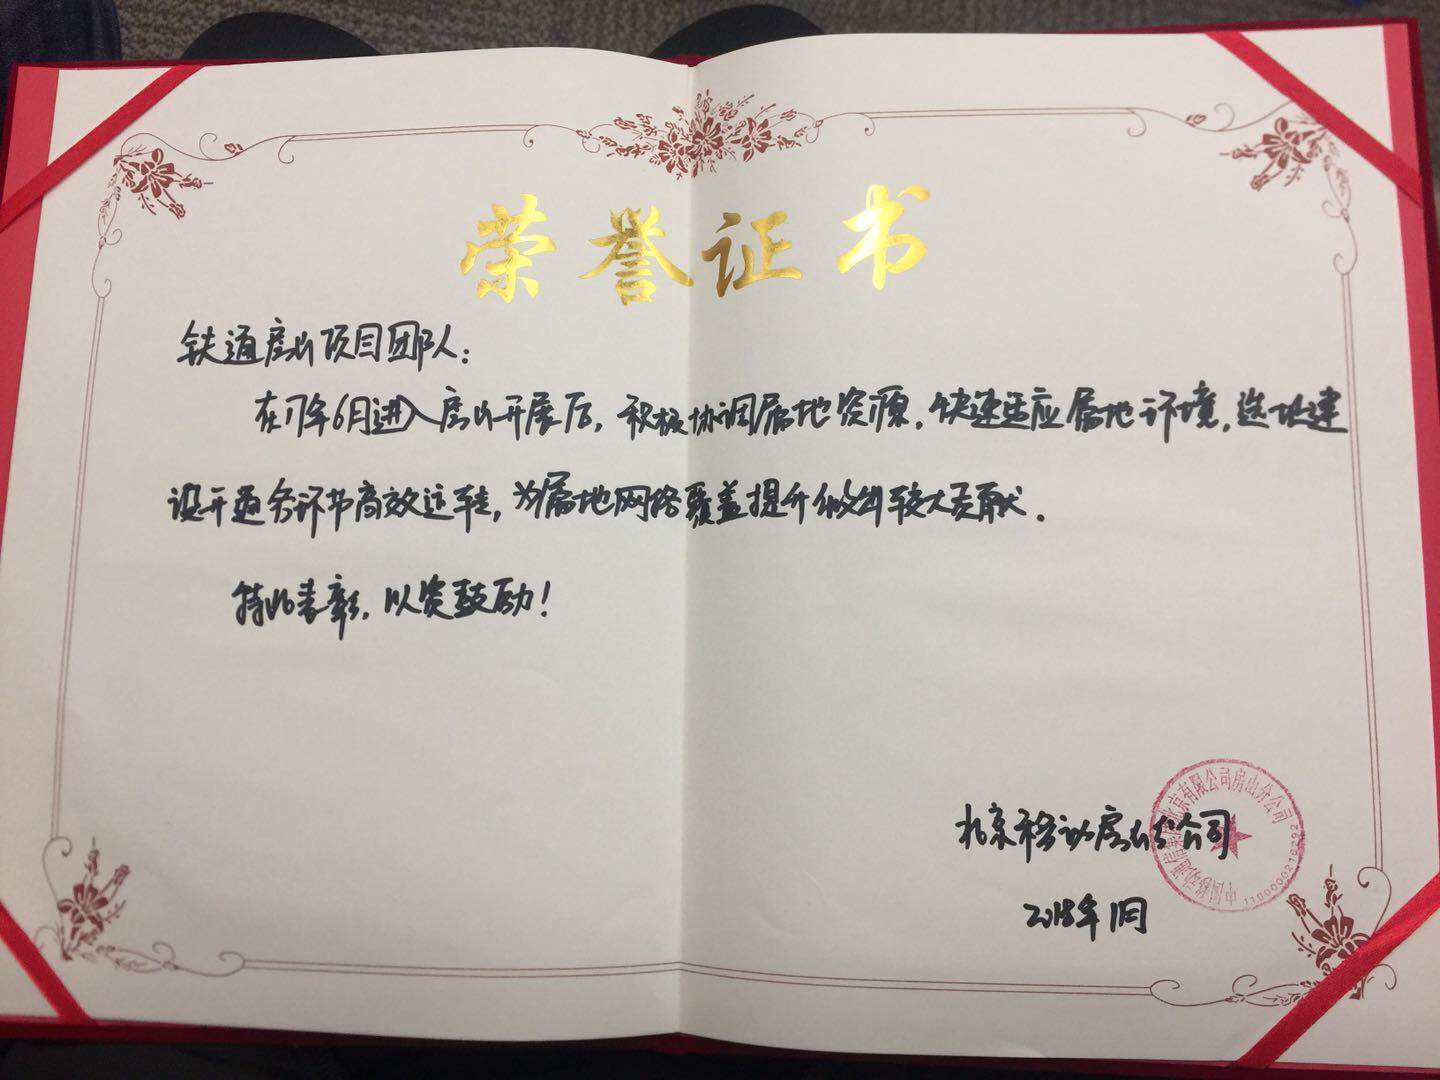 荣誉证书
铁通房山项目团队：
在17年6月进入房山开展后，积极协调属地资源，快速适应属地环境，选址建
设开通各环节高效运转，为属地网络覆盖提升做出较大贡献．
特此表彰，以资鼓励！
北京移动房山分公司
2018年1月
中国移动通信集团北京有限公司房山分公司